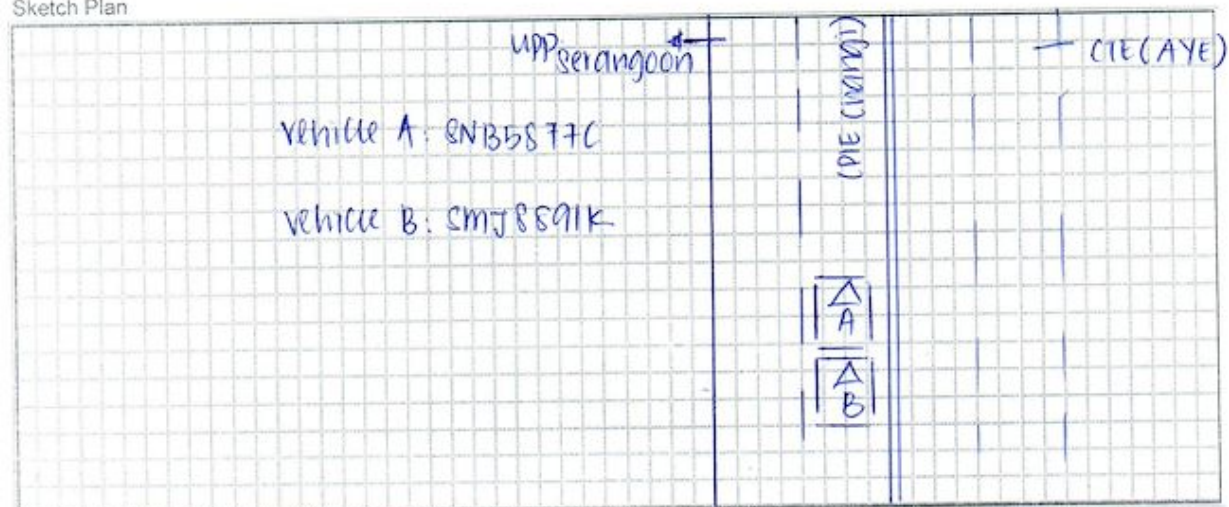 Sketch Plan
Upp Serangoon
(PIE Changi)
CTE (AYE)
vehicle A: SNB5877C
vehicle B: SMJ8891K
A
B